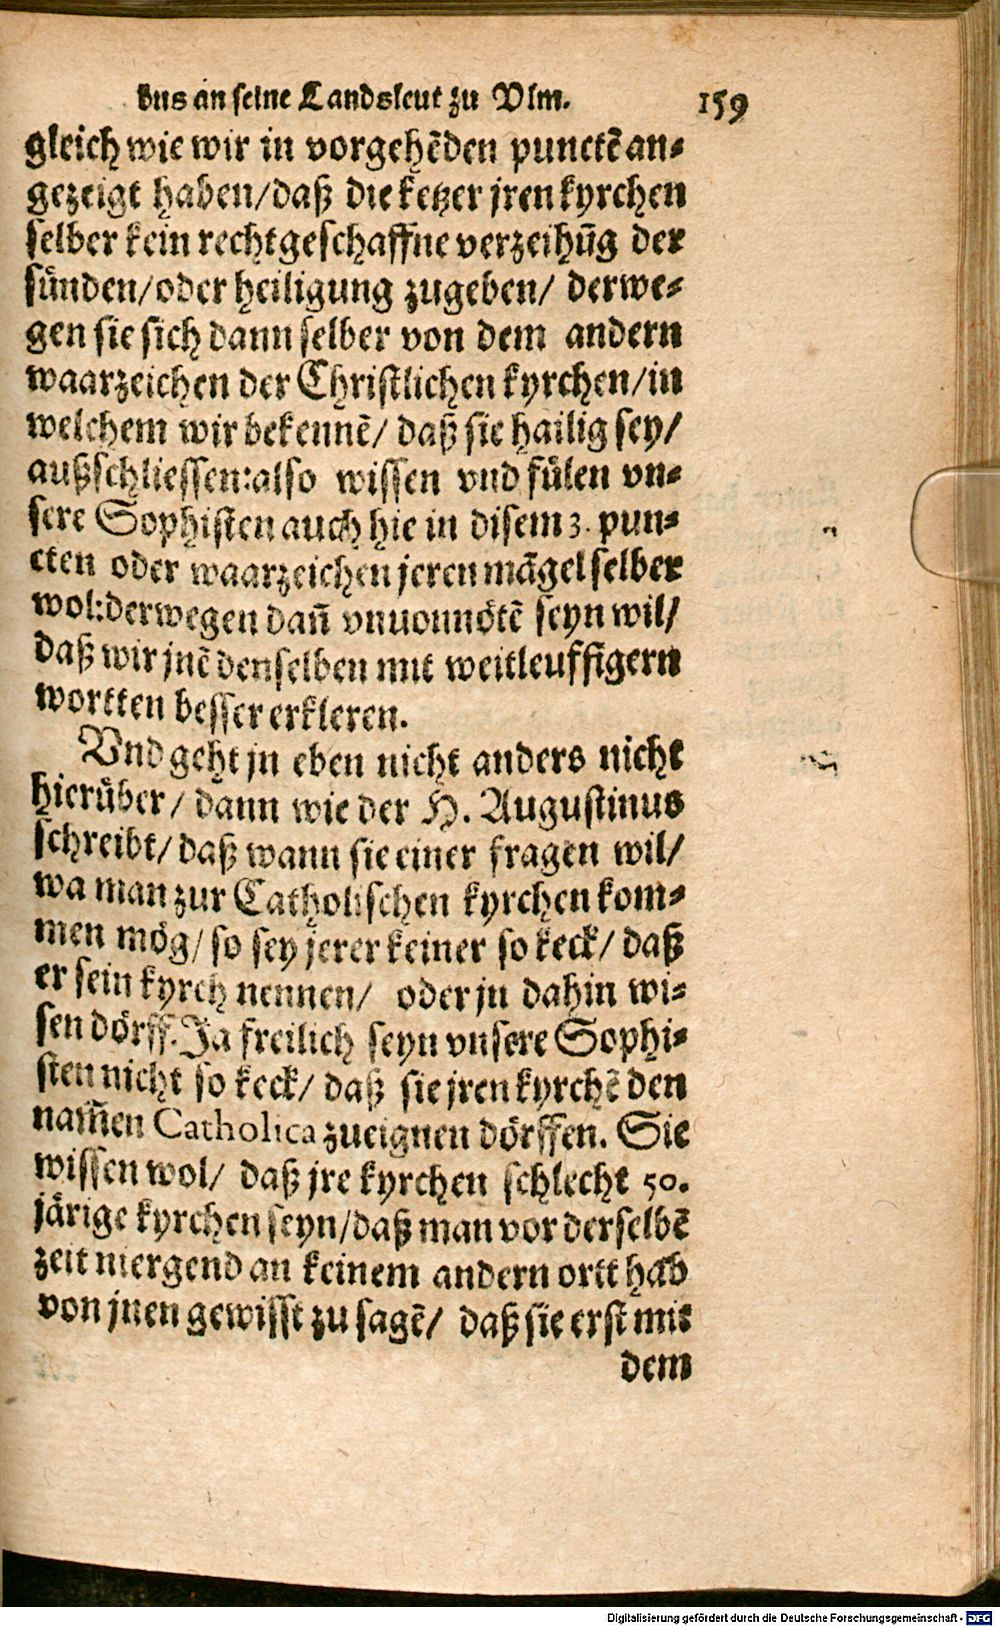 bus an seine Landsleut zu Vlm. 159
gleich wie wir in vorgehẽden punctẽ an-
gezeigt haben/daß die ketzer jren kyrchen
selber kein rechtgeschaffne verzeihũg der
sünden/oder heiligung zugeben/ derwe-
gen sie sich dann selber von dem andern
waarzeichen der Christlichen kyrchen/in
welchem wir bekennẽ/ daß sie hailig sey/
außschliessen:also wissen vnd fülen vn-
sere Sophisten auch hie in disem 3. pun-
cten oder waarzeichen jeren mãgel selber
wol:derwegen dañ vnuonnötẽ seyn wil/
daß wir jnẽ denselben mit weitleuffigern
wortten besser erkleren.
Vnd geht jn eben nicht anders nicht
hierüber/ dann wie der H. Augustinus
schreibt/ daß wann sie einer fragen wil/
wa man zur Catholischen kyrchen kom-
men mög/ so sey jerer keiner so keck/ daß
er sein kyrch nennen/ oder jn dahin wi-
sen dörff. Ja freilich seyn vnsere Sophi-
sten nicht so keck/ daß sie jren kyrchẽ den
nam̃en Catholica zueignen dörffen. Sie
wissen wol/ daß jre kyrchen schlecht 50.
järige kyrchen seyn/daß man vor derselbẽ
zeit niergend an keinem andern ortt hab
von jnen gewisst zu sagẽ/ daß sie erst mit
dem
Digitalisierung gefördert durch die Deutsche Forschungsgemeinschaft - DFG